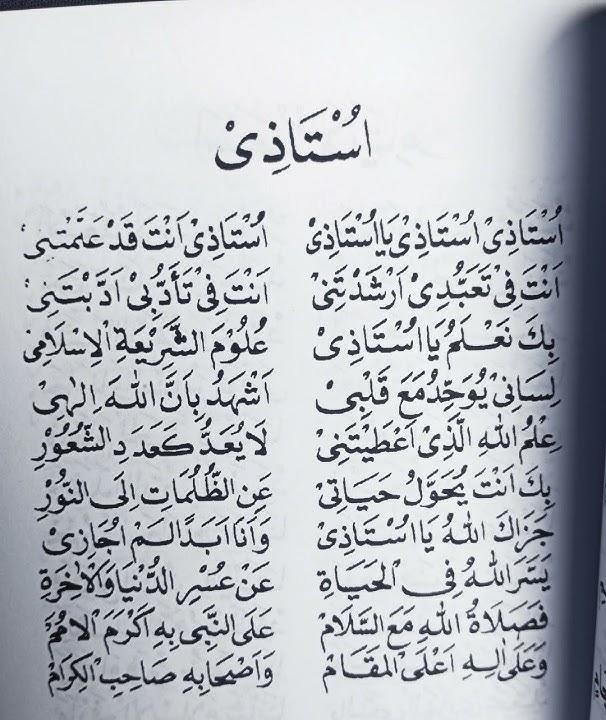 اُسْتَاذِىْ
اُسْتَاذِىْ اُسْتَاذِىْ يَا اُسْتَاذِىْ اُسْتَاذِىْ اَنْتَ قَدْ عَلَّمْتَنِىْ
اَنْتَ فِىْ تَعَبُّدِىْ اَرْشَدْتَنِىْ اَنْتَ فِىْ تَأَدُّبِىْ اَدَّبْتَنِىْ
بِكَ نَعْلَمُ يَا اُسْتَاذِىْ عُلُوْمَ الشَّرِيْعَةِ الْاِسْلَامِىْ
لِسَانِىْ يُوَحِّدُ مَعَ قَلْبِىْ اَشْهَدُ بِاَنَّ اللّٰهَ اِلٰهِىْ
عِلْمُ اللّٰهِ الَّذِىْ اَعْطَيْتَنِىْ لَا يُعَدُّ كَعَدَدِ الشُّعُوْرِ
بِكَ اَنْتَ يُحَوَّلُ حَيَاتِىْ عَنِ الظُّلُمَاتِ اِلَى النُّوْرِ
جَزَاكَ اللّٰهُ يَا اُسْتَاذِىْ وَاَنَا اَبَدًا لَمْ اُجَازِىْ
يَسَّرَ اللّٰهُ فِى الْحَيَاةِ عَنْ عُسْرِ الدُّنْيَا وَالْاٰخِرَةِ
فَصَلَاةُ اللّٰهِ مَعَ السَّلَامْ عَلَى النَّبِى بِهِ اَكْرَمَ الْاُمَمْ
وَعَلَى اٰلِهِ اَعْلَى الْمَقَامْ وَاَصْحَابِهِ صَاحِبِ الْكِرَامْ